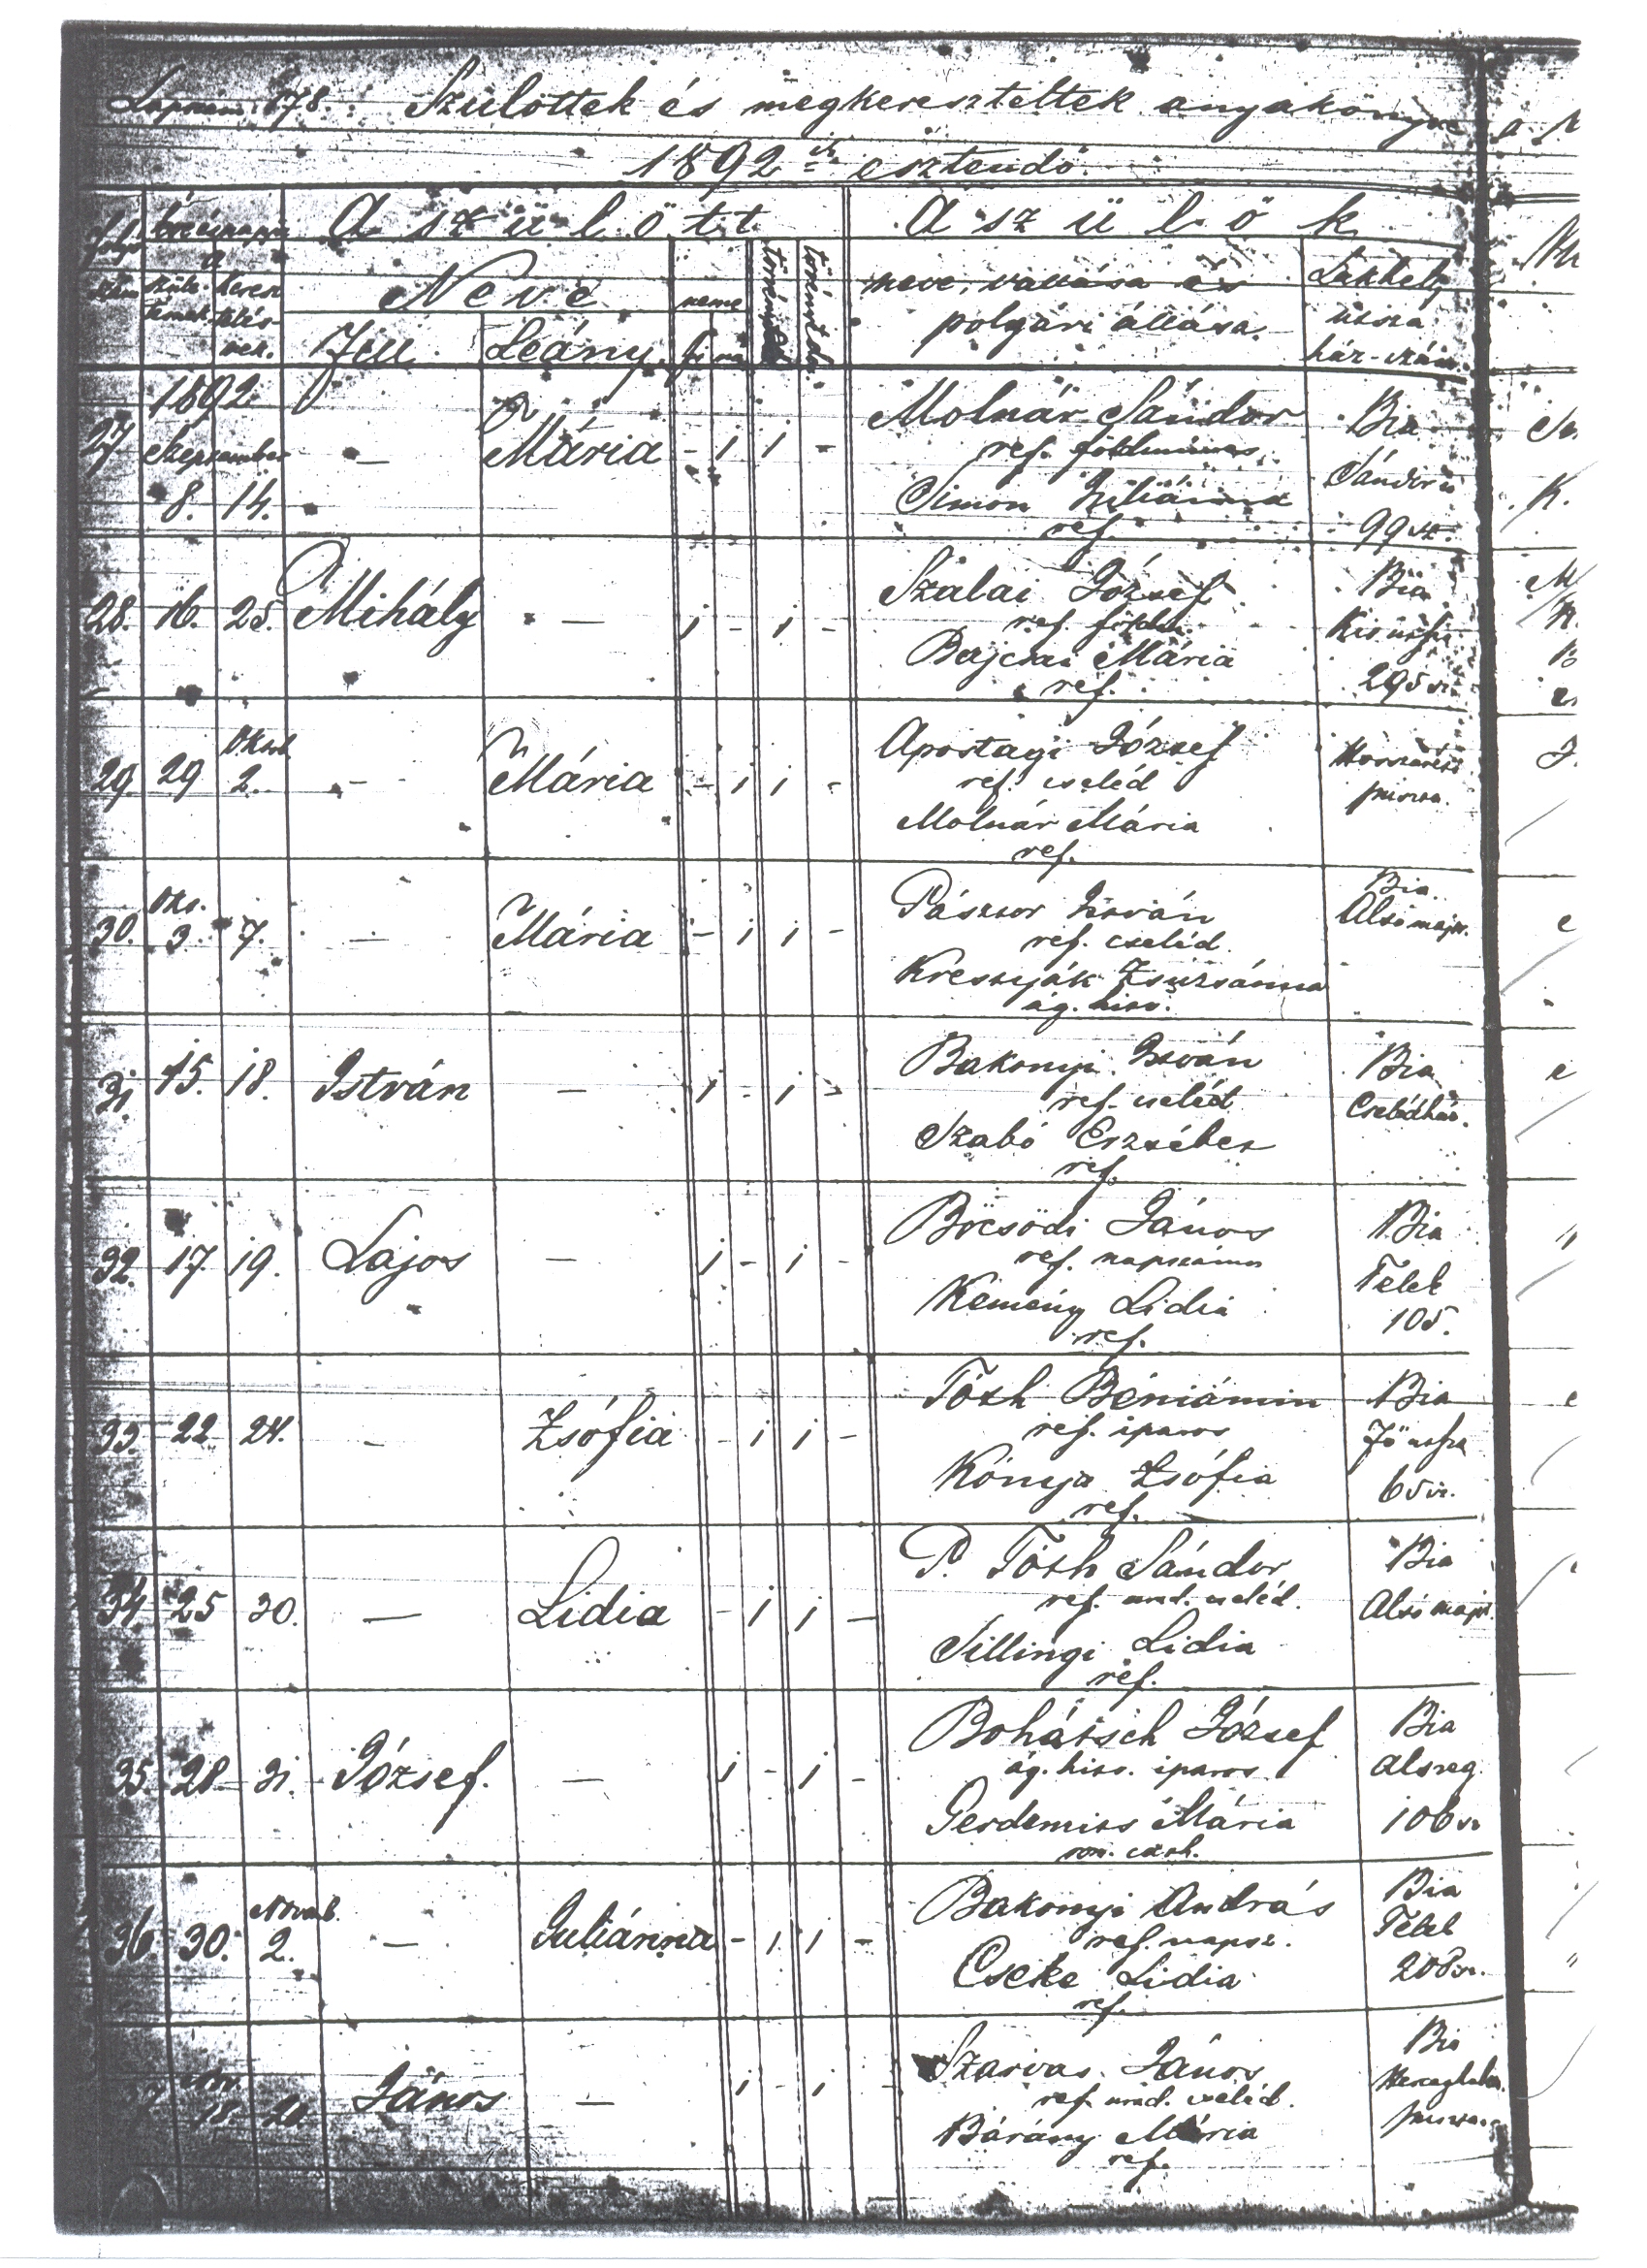 Lapszám 178. Szülöttek és megkereszteltek anyakönyve
1892ik esztendő.
A szülött
A szülők
Neve
neme
neve, vallása és polgári állása.
Lakhely
utcza
ház-szám.
Fiu
Leány
fi
nő
1892
27 September 8. 14. — Mária - 1 1 -
Molnár Sándor
ref. földmíves
Simon Juliánna
ref.
Bia
Sándor u
99 sz.
28. 16. 25. Mihály — 1 - 1 -
Szalai József
ref. földm.
Bajcsai Mária
ref.
Bia
Kis utcza
295 sz.
29. 29 Oktob. 2. — Mária - 1 1 -
Apostagi József
ref. cseléd
Molnár Mária
ref.
puszta.
30. Okt. 3. 7. — Mária - 1 1 -
Pásztor István
ref. cseléd.
Kresztják Zsuzsánna
ág. hitv.
Bia
Alsó major.
31. 15. 18. István — 1 - 1 -
Bakonyi István
ref. cseléd
Szabó Erzsébet
ref.
Bia
Cselédház.
32. 17. 19. Lajos — 1 - 1 -
Böcsödi János
ref. napszámos
Kemény Lidia
ref.
Bia
Telek
105.
33. 22 24. — Zsófia - 1 1 -
Tóth Béniámin
ref. iparos
Kónya Zsófia
ref.
Bia
Fő utcza
65 sz.
34 25 30. — Lidia - 1 1 -
P. Tóth Sándor
ref. urad. cseléd.
Sillingi Lidia
ref.
Bia
Alsó major.
35. 28 31. József. — 1 - 1 -
Bohátsch József
ág. hitv. iparos
Mária
rom. cath.
Bia
alszeg
106 sz
36 30. Novemb. 2. — Juliánna - 1 1 -
Bakonyi András
ref. napsz.
Cseke Lidia
ref.
Bia
Telek
208 sz.
37 Nov. 18. 20 János — 1 - 1 -
Szarvas János
ref. urad. cseléd.
Bárány Mária
ref.
Bia
puszta.